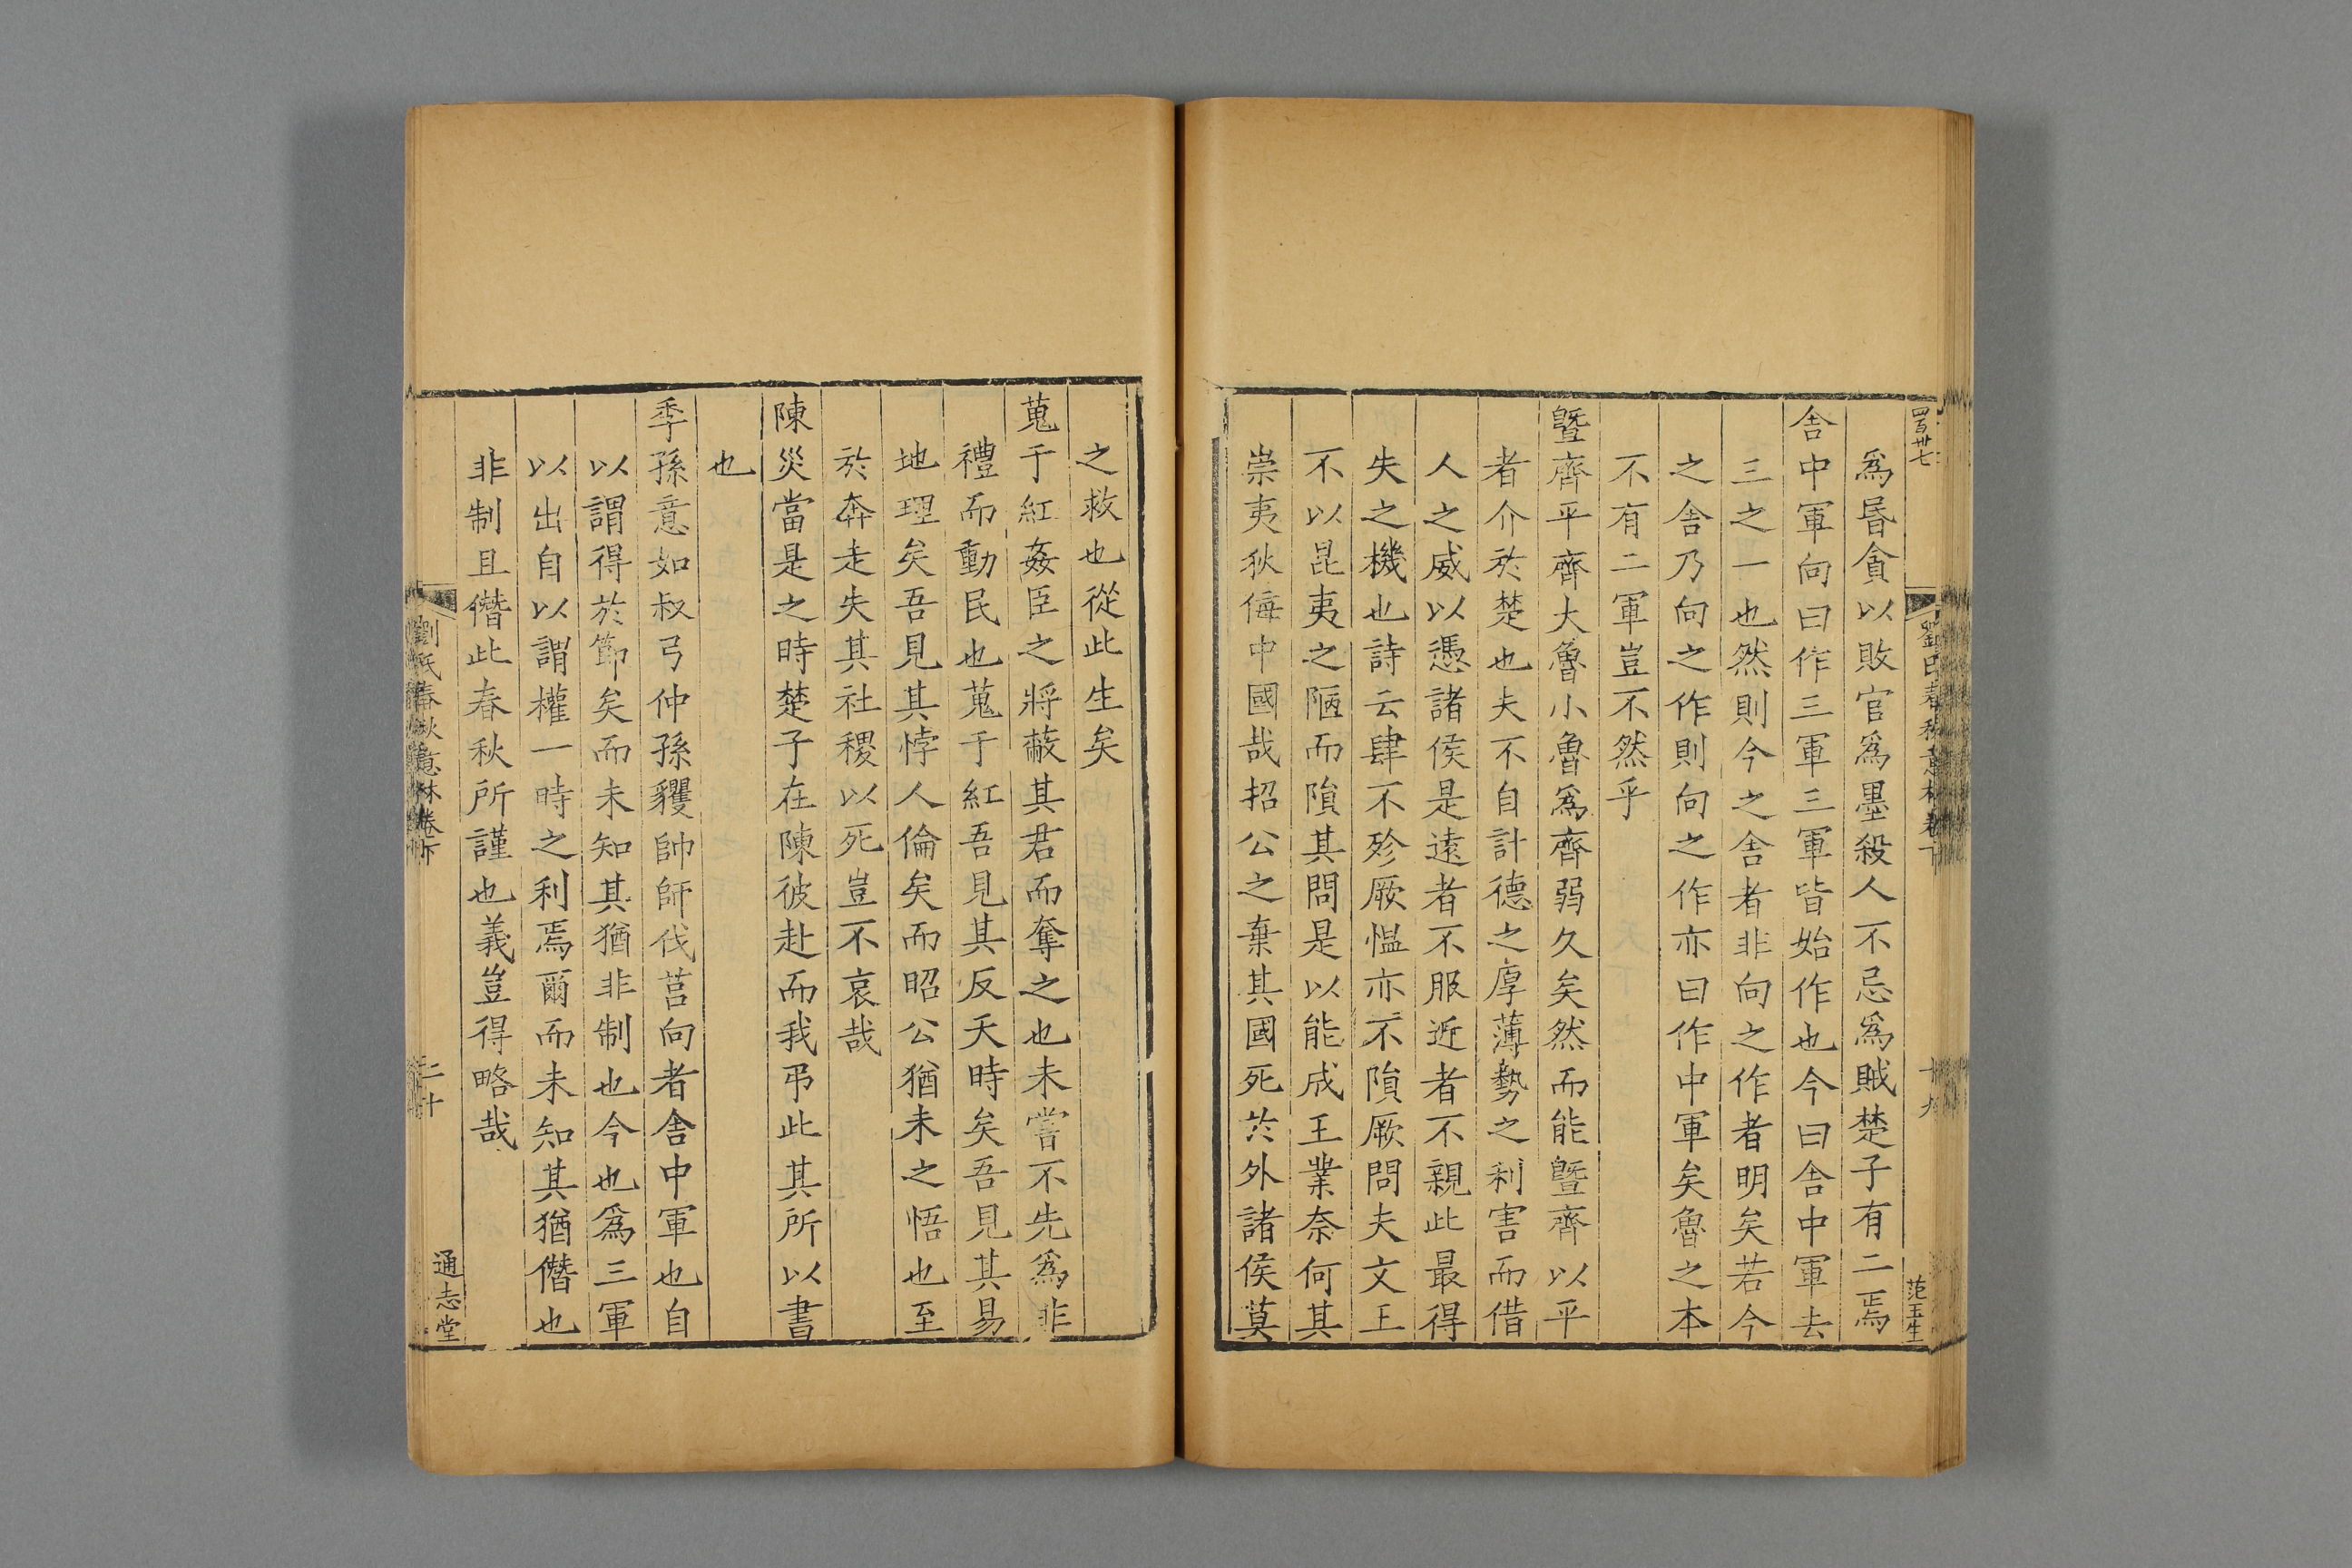 四百卅七
劉氏春秋意林卷下
十九
范玉生
爲昬貪以敗官爲墨殺人不忌爲賊楚子有二焉
舍中軍向曰作三軍三軍皆始作也今曰舍中軍去
三之一也然則今之舍者非向之作者明矣若今
之舍乃向之作則向之作亦曰作中軍矣魯之本
不有二軍豈不然乎
曁齊平齊大魯小魯爲齊弱久矣然而能曁齊以平
者介於楚也夫不自計德之厚薄勢之利害而借
人之威以憑諸侯是遠者不服近者不親此最得
失之機也詩云肆不殄厥愠亦不隕厥問夫文王
不以昆夷之陋而隕其問是以能成王業奈何其
崇夷狄侮中國哉招公之棄其國死於外諸侯莫
之救也從此生矣
蒐于紅姦臣之將蔽其君而奪之也未嘗不先爲非
禮而動民也蒐于紅吾見其反天時矣吾見其易
地理矣吾見其悖人倫矣而昭公猶未之悟也至
於奔走失其社稷以死豈不哀哉
陳災當是之時楚子在陳彼赴而我弔此其所以書
也
季孫意如叔弓仲孫貜帥師伐莒向者舍中軍也自
以謂得於節矣而未知其猶非制也今也爲三軍
以出自以謂權一時之利焉爾而未知其猶僭也
非制且僭此春秋所謹也義豈得略哉
劉氏春秋意林卷下
二十
通志堂